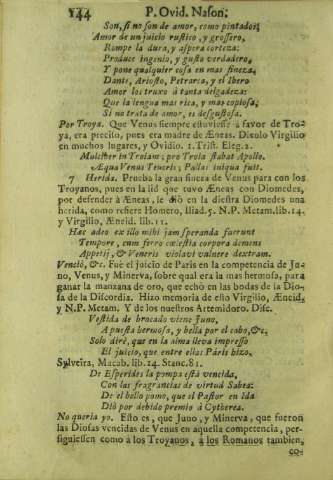 144 P. Ovid. Nason.
Son, si no son de amor, como pintados;
Amor de un juicio rustico, y grossero,
Rompe la dura, y aspera corteza:
Produce ingenio, y gusto verdadero,
Y pone qualquier cosa en mas fineza.
Dante, Ariosto, Petrarca, y el Ibero
Amor los truxo à tanta delgadeza:
Que la lengua mas rica, y mas copiosa;
Si no trata de amor, es desgustosa.
Por Troya. Que Venus siempre estuviesse à favor de Tro-
ya, era preciso, pues era madre de Æneas. Dixolo Virgilio
en muchos lugares, y Ovidio. 1. Trist. Eleg. 2.
Mulciber in Troiam; pro Troia stabat Apollo.
Æqua Venus Teucris; Pallas iniqua fuit.
7 Herida. Prueba la gran fuerza de Venus para con los
Troyanos, pues en la lid que tuvo Æneas con Diomedes,
por defender à Æneas, le diò en la diestra Diomedes una
herida, como refiere Homero, Iliad. 5. N.P. Metam. lib. 14.
y Virgilio, Æneid. lib. 11.
Hac adeo ex illo mihi jam speranda fuerunt
Tempore, cum ferro cœlestia corpora demens
Appetij, & Veneris violavi vulnere dextram.
Venciò, &c. Fuè el juicio de Paris en la competencia de Ju-
no, Venus, y Minerva, sobre qual era la mas hermosa, para
ganar la manzana de oro, que echò en las bodas de la Dio-
sa de la Discordia. Hizo memoria de esto Virgilio, Æneid,
y N.P. Metam. Y de los nuestros Artemidoro. Disc.
Vestida de brocado viene Juno,
A puesta hermosa, y bella por el cabo, &c.
Solo dirè, que en la alma lleva impresso
El juicio, que entre ellas Pàris hizo.
Sylveira, Macab. lib. 14. Stanc. 81.
De Esperides la pompa està vencida,
Con las fragrancias de virtud Sabea:
De el bello pomo, que el Pastor en Ida
Diò por debido premio à Cytherea.
No queria yo. Esto es, que Juno, y Minerva, que fueron
las Diosas vencidas de Venus en aquella competencia, per-
siguiessen como à los Troyanos, à los Romanos tambien,
co-